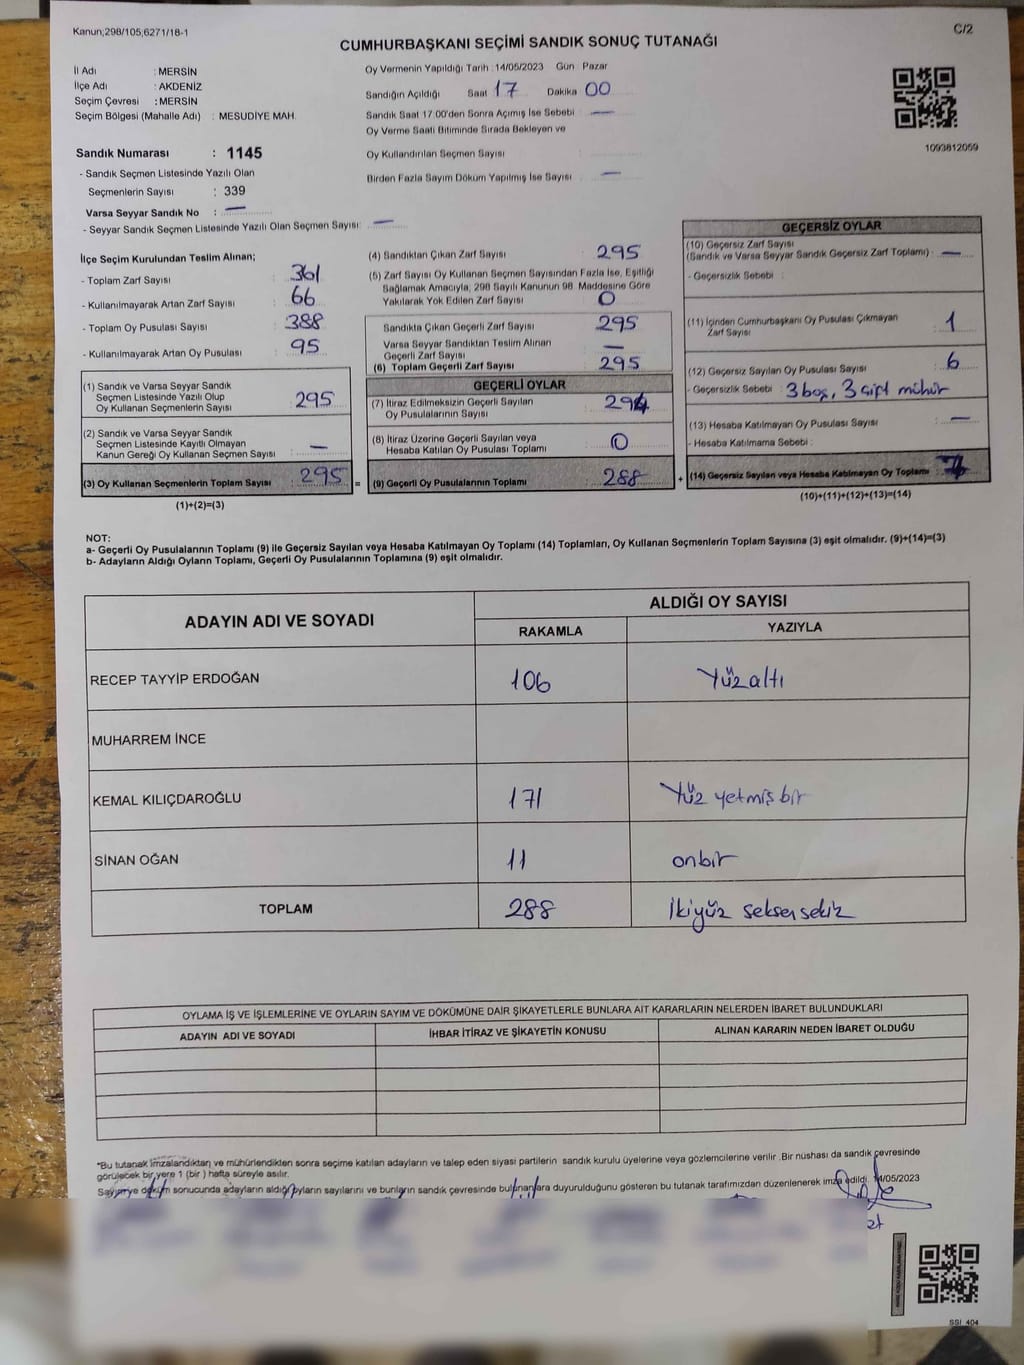 Kanun;298/105,6271/18-1
C/2
CUMHURBAŞKANI SEÇİMİ SANDIK SONUÇ TUTANAĞI
İl Adı : MERSİN
İlçe Adı : AKDENİZ
Seçim Çevresi : MERSİN
Seçim Bölgesi (Mahalle Adı) : MESUDİYE MAH.
Sandık Numarası : 1145
- Sandık Seçmen Listesinde Yazılı Olan
Seçmenlerin Sayısı : 339
Varsa Seyyar Sandık No : —
- Seyyar Sandık Seçmen Listesinde Yazılı Olan Seçmen Sayısı: —
Oy Vermenin Yapıldığı Tarih : 14/05/2023 Gün : Pazar
Sandığın Açıldığı Saat 17 Dakika 00
Sandık Saat 17:00'den Sonra Açımış İse Sebebi : —
Oy Verme Saati Bitiminde Sırada Bekleyen ve
Oy Kullandırılan Seçmen Sayısı :
Birden Fazla Sayım Döküm Yapılmış İse Sayısı : —
1093812059
İlçe Seçim Kurulundan Teslim Alınan;
- Toplam Zarf Sayısı : 361
- Kullanılmayarak Artan Zarf Sayısı : 66
- Toplam Oy Pusulası Sayısı : 388
- Kullanılmayarak Artan Oy Pusulası : 95
(1) Sandık ve Varsa Seyyar Sandık
Seçmen Listesinde Yazılı Olup
Oy Kullanan Seçmenlerin Sayısı : 295
(2) Sandık ve Varsa Seyyar Sandık
Seçmen Listesinde Kayıtlı Olmayan
Kanun Gereği Oy Kullanan Seçmen Sayısı : —
(3) Oy Kullanan Seçmenlerin Toplam Sayısı : 295 =
(1)+(2)=(3)
(4) Sandıktan Çıkan Zarf Sayısı : 295
(5) Zarf Sayısı Oy Kullanan Seçmen Sayısından Fazla İse, Eşitliği
Sağlamak Amacıyla, 298 Sayılı Kanunun 98. Maddesine Göre
Yakılarak Yok Edilen Zarf Sayısı : 0
Sandıkta Çıkan Geçerli Zarf Sayısı : 295
Varsa Seyyar Sandıktan Teslim Alınan
Geçerli Zarf Sayısı : —
(6) Toplam Geçerli Zarf Sayısı : 295
GEÇERLİ OYLAR
(7) İtiraz Edilmeksizin Geçerli Sayılan
Oy Pusulalarının Sayısı :
(8) İtiraz Üzerine Geçerli Sayılan veya
Hesaba Katılan Oy Pusulası Toplamı : 0
(9) Geçerli Oy Pusulalarının Toplamı : 288 +
GEÇERSİZ OYLAR
(10) Geçersiz Zarf Sayısı
(Sandık ve Varsa Seyyar Sandık Geçersiz Zarf Toplamı) : —
- Geçersizlik Sebebi :
(11) İçinden Cumhurbaşkanı Oy Pusulası Çıkmayan
Zarf Sayısı : 1
(12) Geçersiz Sayılan Oy Pusulası Sayısı : 6
- Geçersizlik Sebebi : 3 boş, 3 çift mühür
(13) Hesaba Katılmayan Oy Pusulası Sayısı : —
- Hesaba Katılmama Sebebi :
(14) Geçersiz Sayılan veya Hesaba Katılmayan Oy Toplamı :
(10)+(11)+(12)+(13)=(14)
NOT:
a- Geçerli Oy Pusulalarının Toplamı (9) ile Geçersiz Sayılan veya Hesaba Katılmayan Oy Toplamı (14) Toplamları, Oy Kullanan Seçmenlerin Toplam Sayısına (3) eşit olmalıdır. (9)+(14)=(3)
b- Adayların Aldığı Oyların Toplamı, Geçerli Oy Pusulalarının Toplamına (9) eşit olmalıdır.
ADAYIN ADI VE SOYADI
ALDIĞI OY SAYISI
RAKAMLA YAZIYLA
RECEP TAYYİP ERDOĞAN 106 Yüzaltı
MUHARREM İNCE
KEMAL KILIÇDAROĞLU 171 Yüz yetmiş bir
SİNAN OĞAN 11 onbir
TOPLAM 288 İkiyüz seksensekiz
OYLAMA İŞ VE İŞLEMLERİNE VE OYLARIN SAYIM VE DÖKÜMÜNE DAİR ŞİKAYETLERLE BUNLARA AİT KARARLARIN NELERDEN İBARET BULUNDUKLARI
ADAYIN ADI VE SOYADI İHBAR İTİRAZ VE ŞİKAYETİN KONUSU ALINAN KARARIN NEDEN İBARET OLDUĞU
*Bu tutanak imzalandıktan ve mühürlendikten sonra seçime katılan adayların ve talep eden siyasi partilerin sandık kurulu üyelerine veya gözlemcilerine verilir .Bir nüshası da sandık çevresinde
görülecek bir yere 1 (bir ) hafta süreyle asılır.
Sayım ve döküm sonucunda adayların aldığı oyların sayılarını ve bunların sandık çevresinde bulunanlara duyurulduğunu gösteren bu tutanak tarafımızdan düzenlenerek imza edildi. 14/05/2023
SSI_404